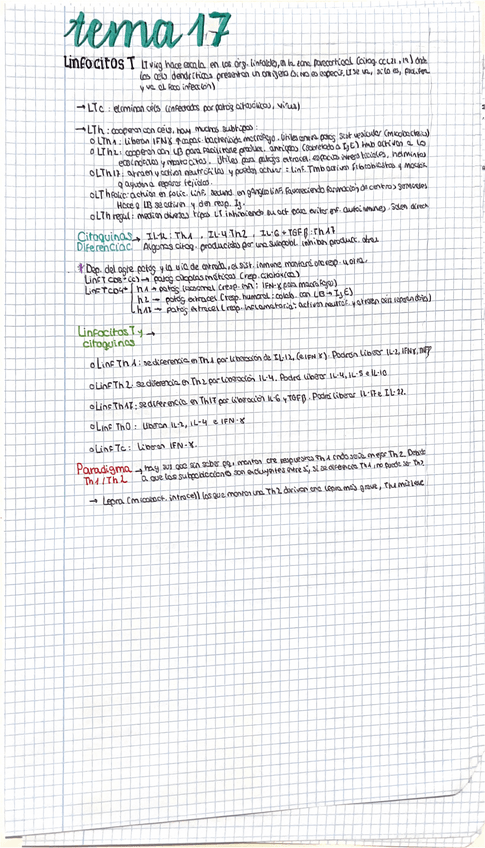 tema 17
Linfocitos T LT virg hace escala en los órg. linfoides, en la zona paracortical (citoq. CCL21, 19) donde
las cels dendríticas presentan un antígeno (si no es específ, LT se va, si lo es, prolifera
y va al foco infección)
→ LTc: eliminan céls (infectadas por patóg citosólicos, virus)
→ LTh: cooperan con céls, hay muchos subtipos:
o LTh1: liberan IFNγ ↑capac. bactericida macrófago. Útiles contra patóg. sist vesicular (micobacterias)
o LTh2: cooperan con LB para facilitar que produc. anticpos (sobretodo a IgE) tmb activan a los
eosinófilos y mastocitos. Útiles para patógs extracel, espacios intersticiales, helmintos
o LTh17: atraen y activan neutrófilos y pueden activar a linf. Tmb activan fibroblastos y
ayudan a reparar tejidos.
o LTh folic: actúan en folíc. linf. secund en ganglio linf. favoreciendo formación de centros germinales
Hace q LB se activen y den resp. Ig.
o LTh regul: median diversos tipos LT inhibiendo su act para evitar enf. autoinmunes. Solen
Citoquinas → IL-12: Th1, IL-4 Th2, IL-6 + TGFβ: Th17
Diferenciac Algunas citoq. producidas por una subpobl. inhiben produc. otras
* Dep. del agte patóg y la vía de entrada, el sist. inmune montará una resp. u otra.
Linf TCD8+ (c) → patóg citoplasmáticos (resp. citotóxica)
Linf TCD4+ h1 → patóg (resp. inf: IFN-γ para macrófago)
h2 → patóg extracel (resp. humoral: colab. con LB → IgE)
h17 → patóg extracel (resp. inflamatoria: activa neutróf. y atraen
Linfocitos T y →
citoquinas
o Linf Th1: se diferencia en Th1 por liberación de IL-12, (e IFNγ). Podrán liberar IL-2, IFNγ, TNFβ
o Linf Th2: se diferencia en Th2 por liberación IL-4. Podrá liberar IL-4, IL-5 e IL-10
o Linf Th17: se diferencia en Th17 por liberación IL-6 y TGFβ. Podrá liberar IL-17 e IL-22.
o Linf Th0: liberan IL-2, IL-4 e IFN-γ
o Linf Tc: liberan IFN-γ.
Paradigma → hay sus que sin saber pq, montan una respuesta Th1 cndo sería mejor Th2. Debido
Th1/Th2 a que las subpoblaciones son excluyentes entre sí, si se diferencia Th1, no puede ser Th2
→ Lepra (micobact. intracel) los que montan una Th2 derivan a una lepra más grave, Th1 más leve